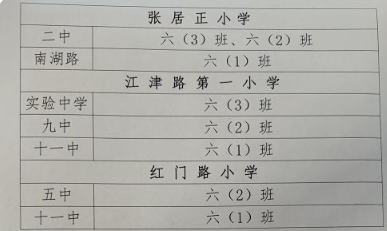 张居正小学
二中 六（3）班、六（2）班
南湖路 六（1）班
江津路第一小学
实验中学 六（3）班
九中 六（2）班
十一中 六（1）班
红门路小学
五中 六（2）班
十一中 六（1）班